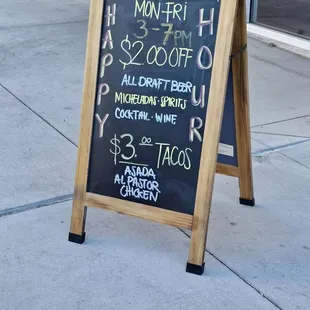 HAPPY
HOUR
MON-FRI
3-7PM
$2.00 OFF
ALL DRAFT BEER
MICHELADAS·SPIRITS
COCKTAIL·WINE
$3.00 TACOS
ASADA
AL PASTOR
CHICKEN